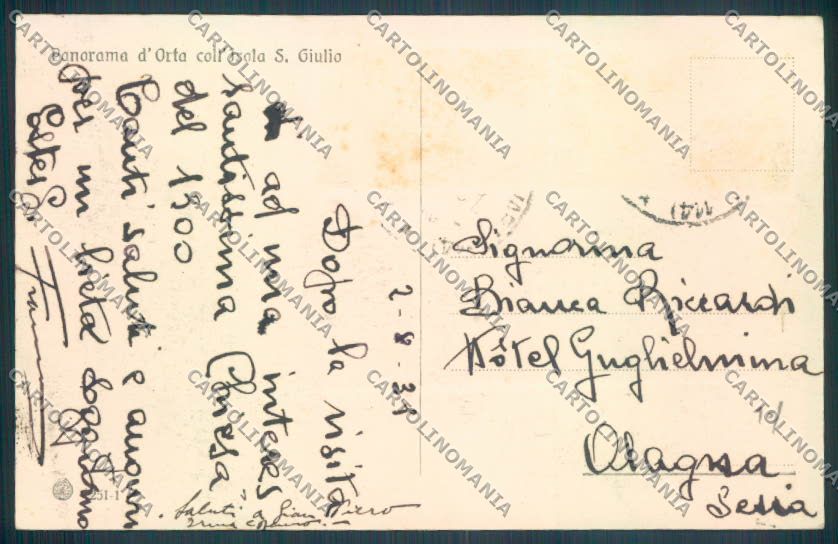 Panorama d'Orta coll'Isola S. Giulio
2-8-31
Dopo la visita
ad una interes
santissima Chiesa
del 1500
Tanti saluti e auguri
per un lieto soggiorno
Saluti a Gian Piero
Signorina
Bianca Riccardi
Hôtel Guglielmina
Alagna
Sesia
CARTOLINOMANIA